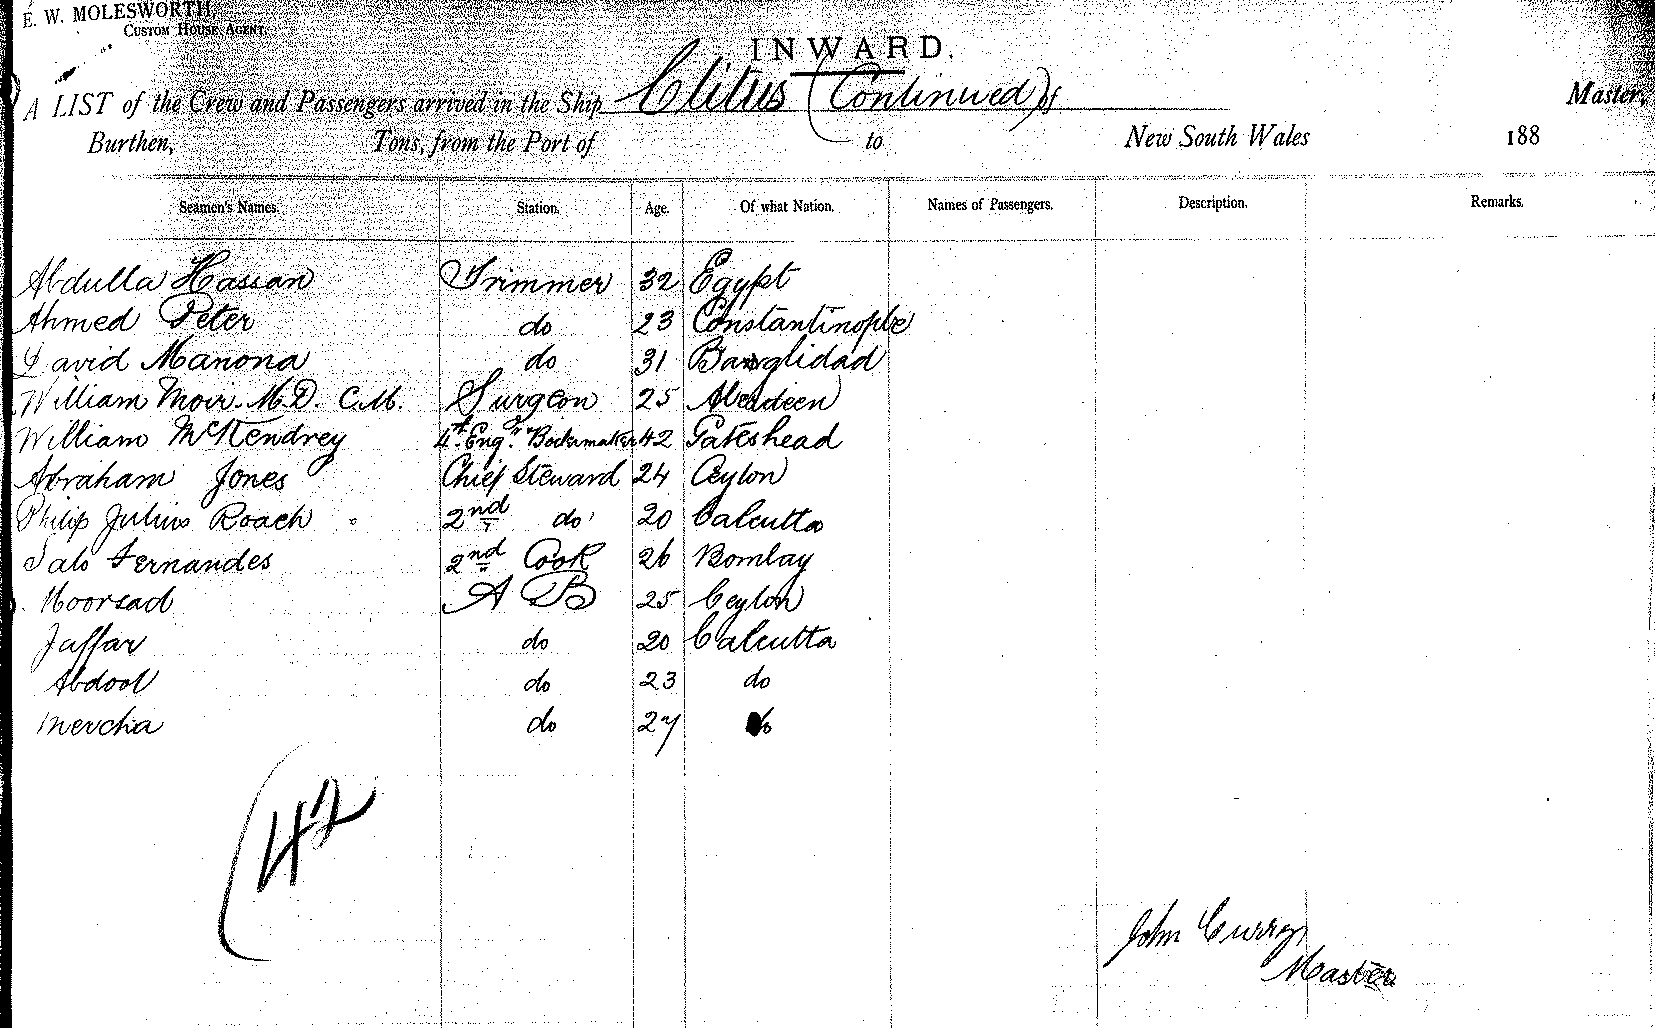 E. W. MOLESWORTH,
CUSTOM HOUSE AGENT.
INWARD.
A LIST of the Crew and Passengers arrived in the Ship Clitus (Continued) of Master,
Burthen, Tons, from the Port of to New South Wales 188
Seamen's Names. Station. Age. Of what Nation. Names of Passengers. Description. Remarks.
Abdulla Hassan Trimmer 32 Egypt
Ahmed Peter do 23 Constantinople
David Manona do 31
William Moir M.D. C.M. Surgeon 25 Aberdeen
William McKendrey 4th Engr 42 Gateshead
Abraham Jones Chief Steward 24 Ceylon
Philip Julius Roach 2nd do 20 Calcutta
Salo Fernandes 2nd Cook 26 Bombay
Moorsad A B 25 Ceylon
Jaffar do 20 Calcutta
Abdool do 23 do
Mercha do 27 do
42
John Curry
Master